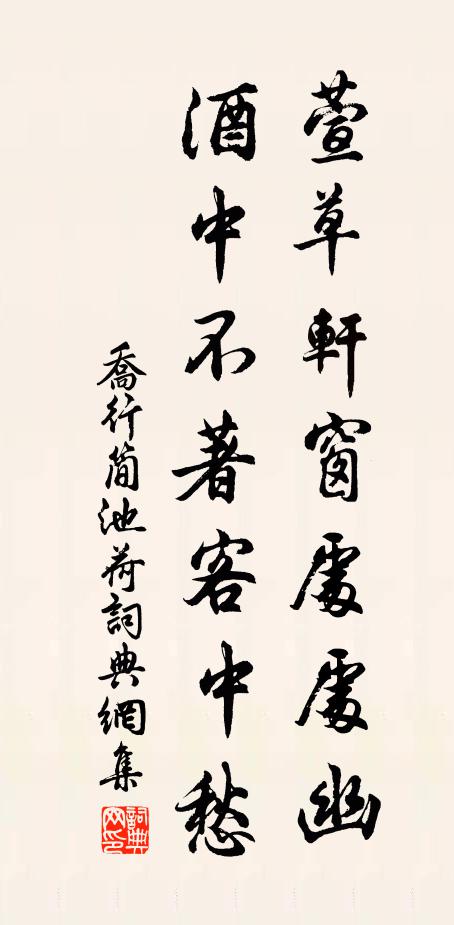 萱草軒窗處處幽
酒中不著客中愁
喬行简池荷詞典網集
詞典網印